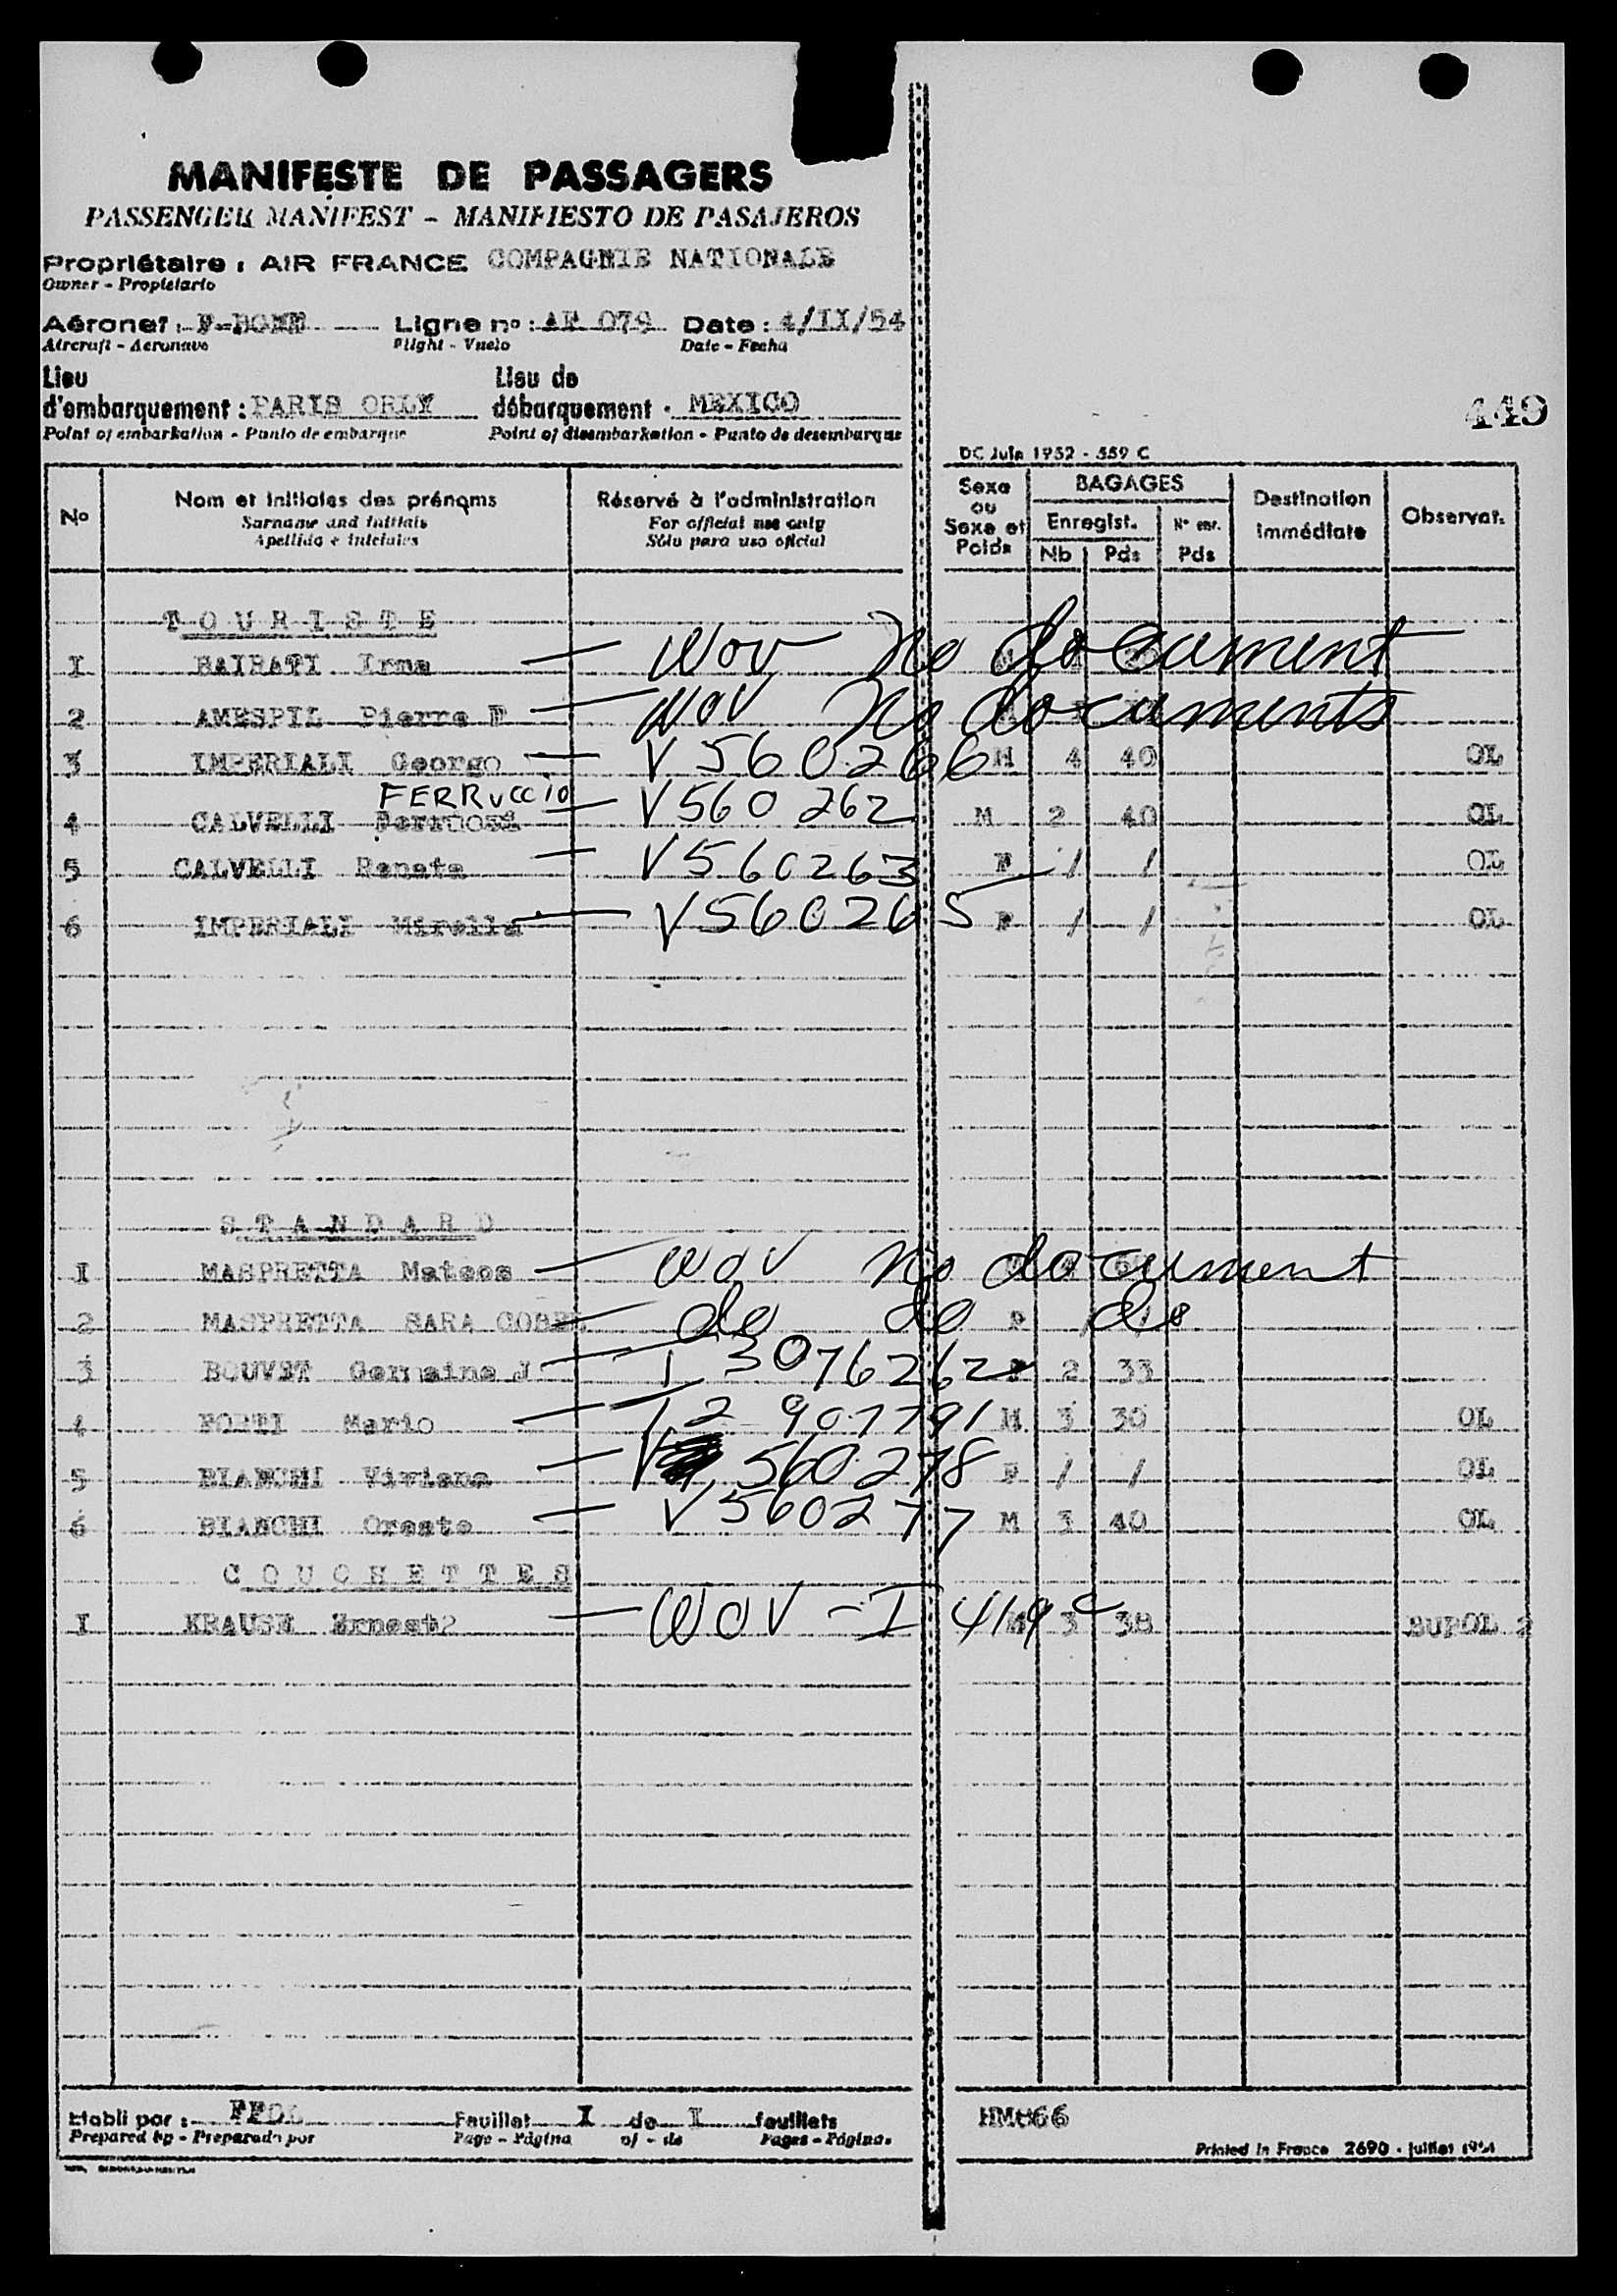 MANIFESTE DE PASSAGERS
PASSENGER MANIFEST - MANIFIESTO DE PASAJEROS
Propriétaire : AIR FRANCE COMPAGNIE NATIONALE
Owner - Propietario
Aéronef : Ligne no : AF 079 Date : 4/II/54
Aircraft - Aeronave Flight - Vuelo Date - Fecha
Lieu d'embarquement : PARIS ORLY Lieu de débarquement : MEXICO
Point of embarkation - Punto de embarque Point of disembarkation - Punto de desembarque
449
DC Juin 1952 - 559 C
No Nom et initiales des prénoms Réservé à l'administration Sexe ou Sexe et Poids BAGAGES Destination immédiate Observat.
Surname and initials For official use only Enregist. N° enr.
Apellido e iniciales Sólo para uso oficial Nb Pds Pds
TOURISTE
I BAIRATI Irma — WOV No document
2 AMESPIL Pierre F — WOV No documents
3 IMPERIALI George — V 560266 M 4 40 OL
FERRUCCIO
4 CALVELLI — V 560 262 M 2 40 OL
5 CALVELLI Renata — V 560263 F / / OL
6 IMPERIALI Mirella — V 560265 F / / OL
STANDARD
I MASPRETTA Mateos — WOV No document
2 MASPRETTA SARA — do do F do
3 BOUVET Germaine J — I 3076262 F 2 33
4 FORTI Mario — I 2 907791 M 3 30 OL
5 BIANCHI Viviana — V 560278 F / / OL
6 BIANCHI Oreste — V 560277 M 3 40 OL
COUCHETTES
I KRAUSE Ernest2 — WOV - I 419 c M 3 38 SUPOL 2
Etabli par : Feuillet I de I feuillets
Prepared by - Preparado por Page - Página of - de Pages - Páginas
Printed in France 2690 - juillet